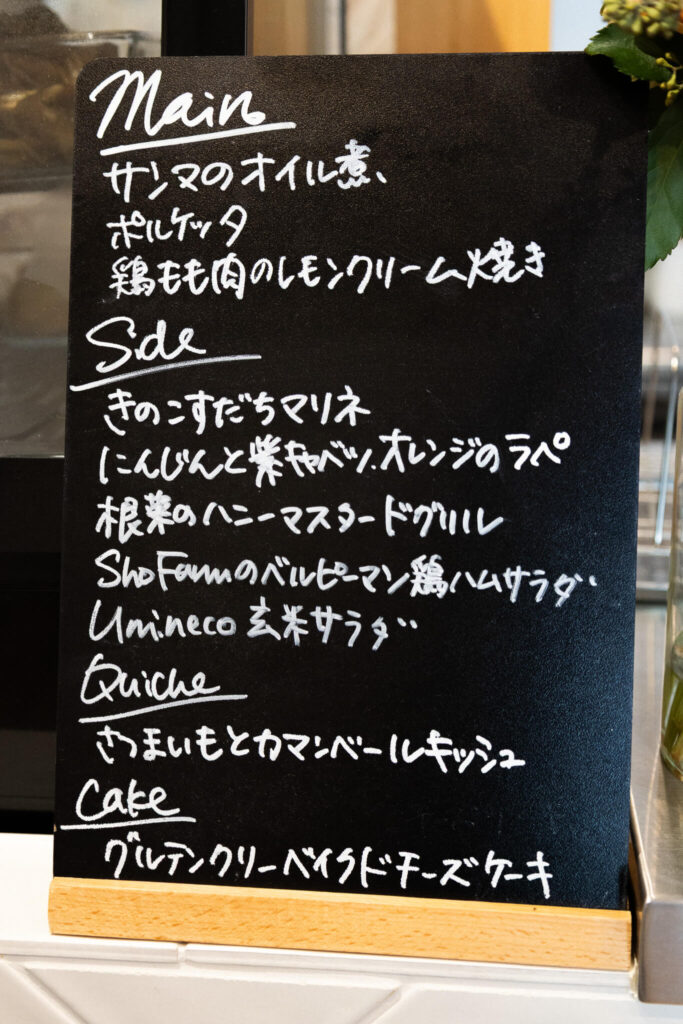 Main
サンマのオイル煮、
ポルケッタ
鶏もも肉のレモンクリーム焼き
Side
きのこすだちマリネ
にんじんと紫キャベツ.オレンジのラペ
根菜のハニーマスタードグリル
Sho Farmのベルピーマン鶏ハムサラダ
Umineco 玄米サラダ
Quiche
さつまいもとカマンベールキッシュ
Cake
グルテンフリーベイクドチーズケーキ